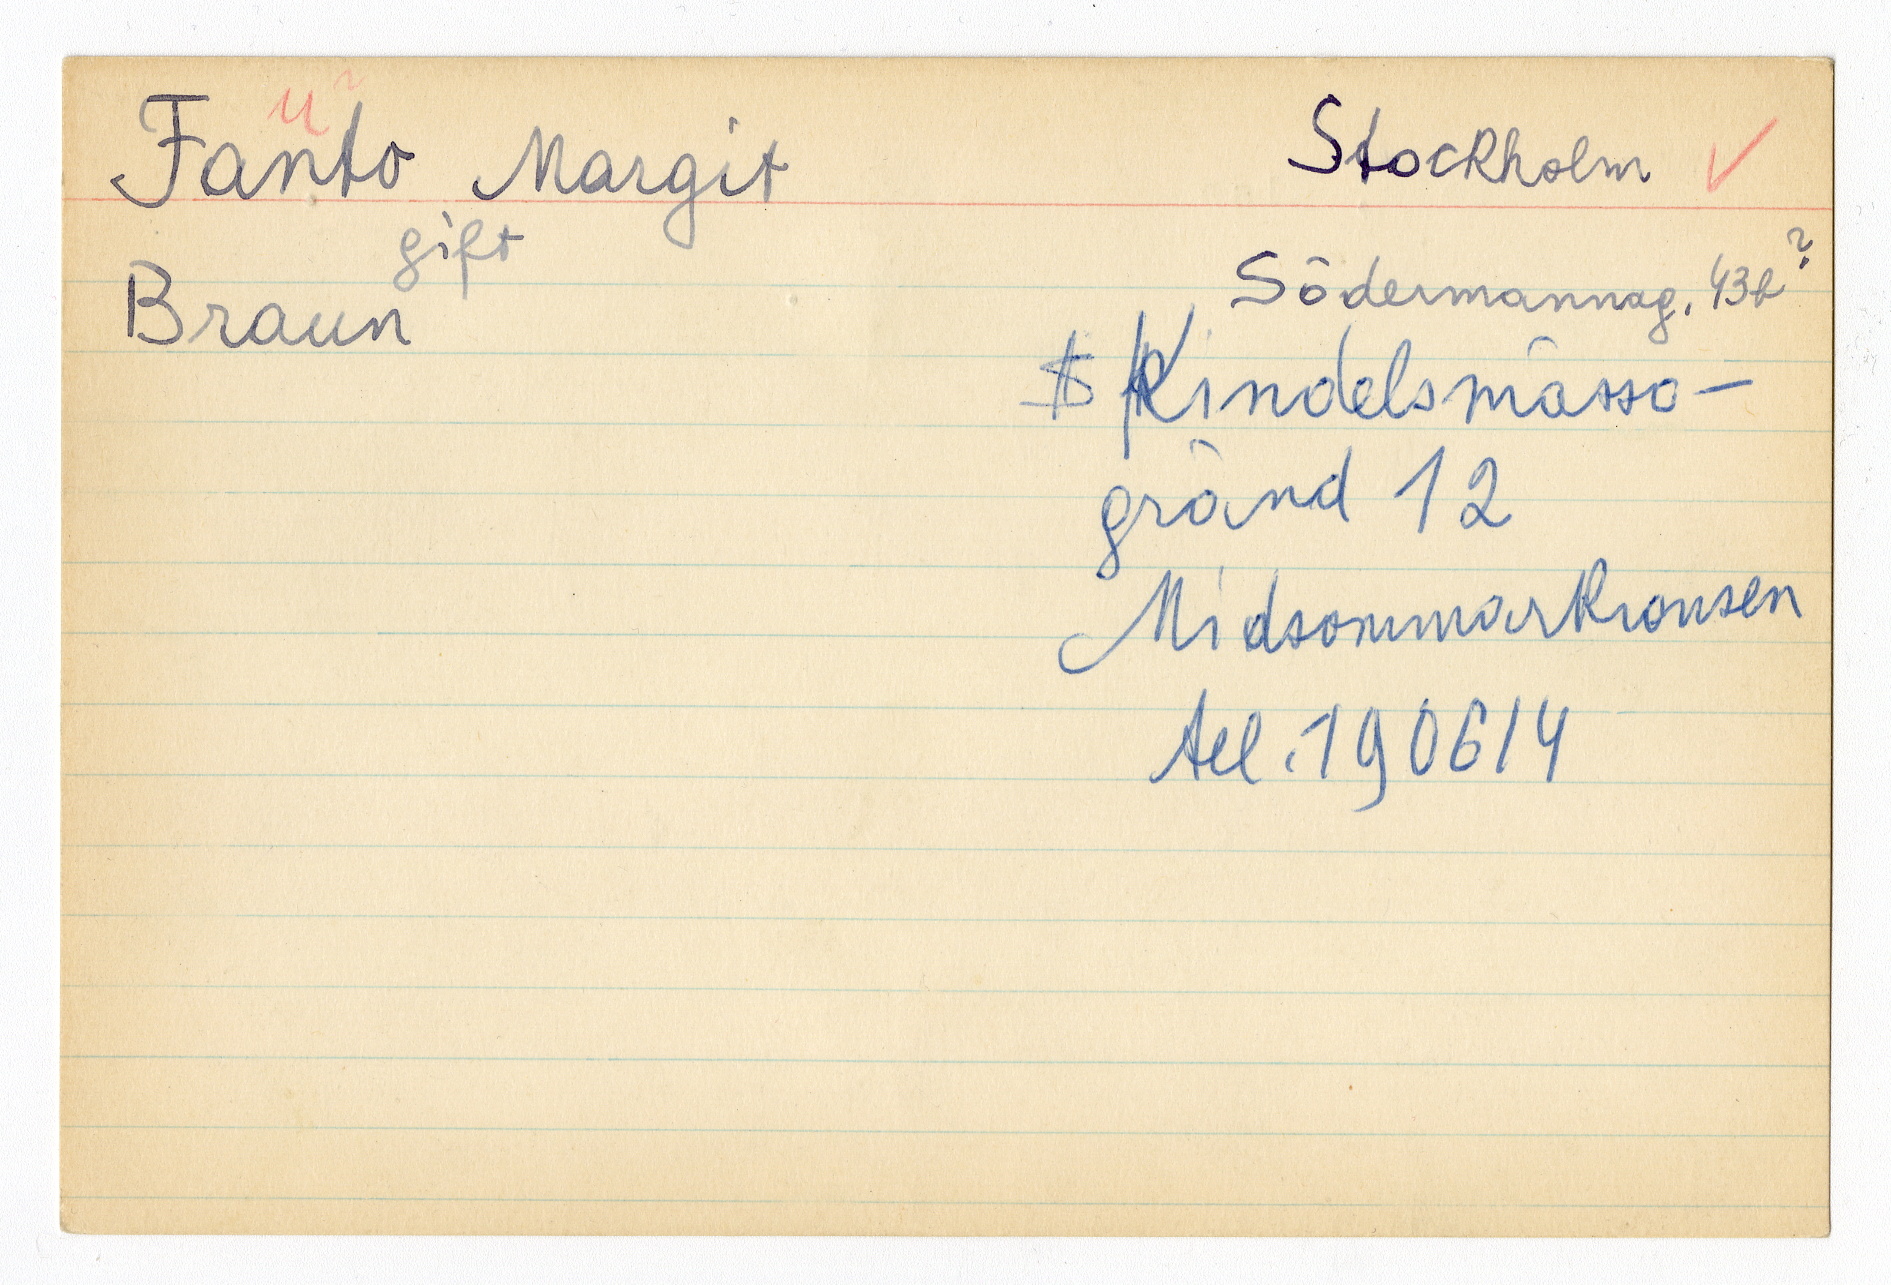 Fanto Margit
u ?
gift
Braun
Stockholm ✓
Södermannag. 43b?
Kindelsmässo-
gränd 12
Midsommarkransen
tel. 190614